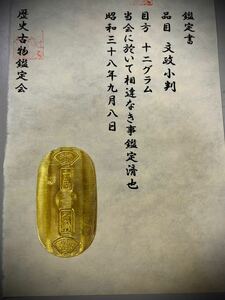 鑑定書
品目 文政小判
目方 十二グラム
当会に於いて相違なき事鑑定済也
昭和三十八年九月八日
歴史古物鑑定会